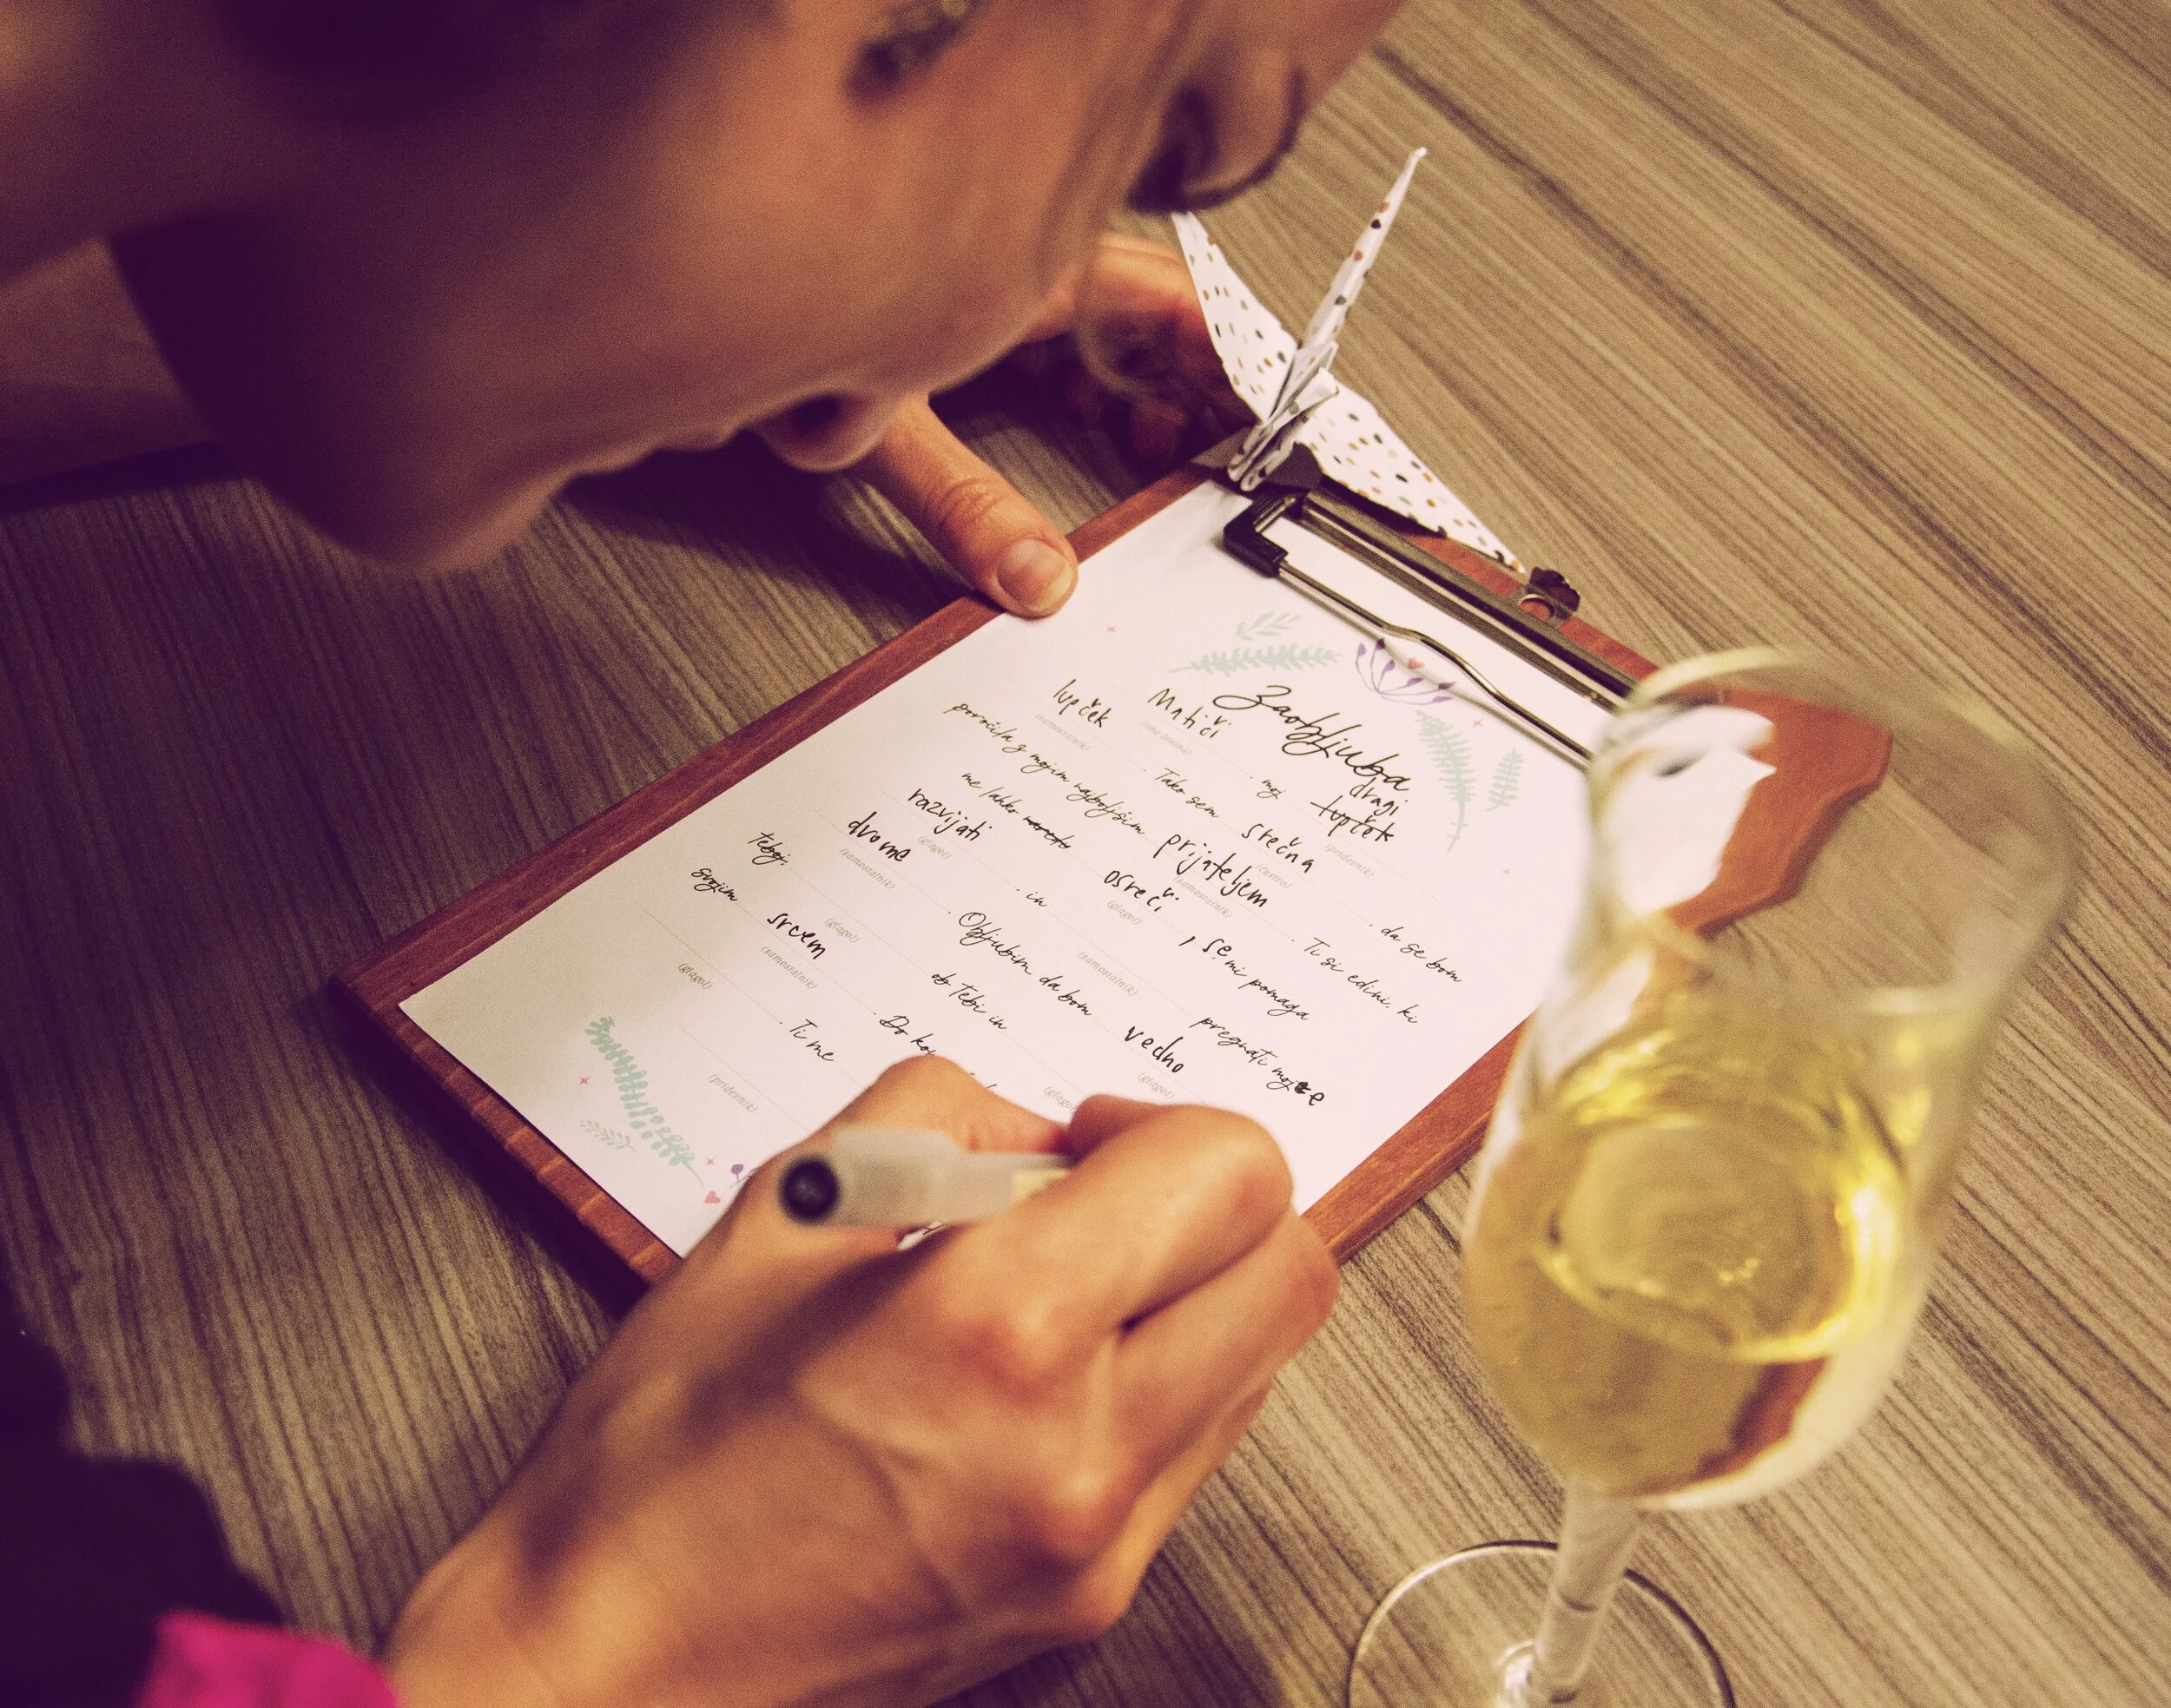 Zaobljuba
dragi
Matiči , moj tupček
(ime ženina) (pridevnik)
lupček . Tako sem srečna , da se bom
(samostalnik) (čustvo)
poročila z mojim najboljšim prijateljem . Ti si edini, ki
(samostalnik)
me lahko osreči , se mi pomaga
(glagol)
razvijati . in pregnati moje
(glagol) (samostalnik)
dvome . Obljubim, da bom vedno
(samostalnik) (glagol)
teboj, ob tebi in
(glagol) (glagol)
svojim srcem . Do
(samostalnik)
. Ti me
(glagol)
(pridevnik)